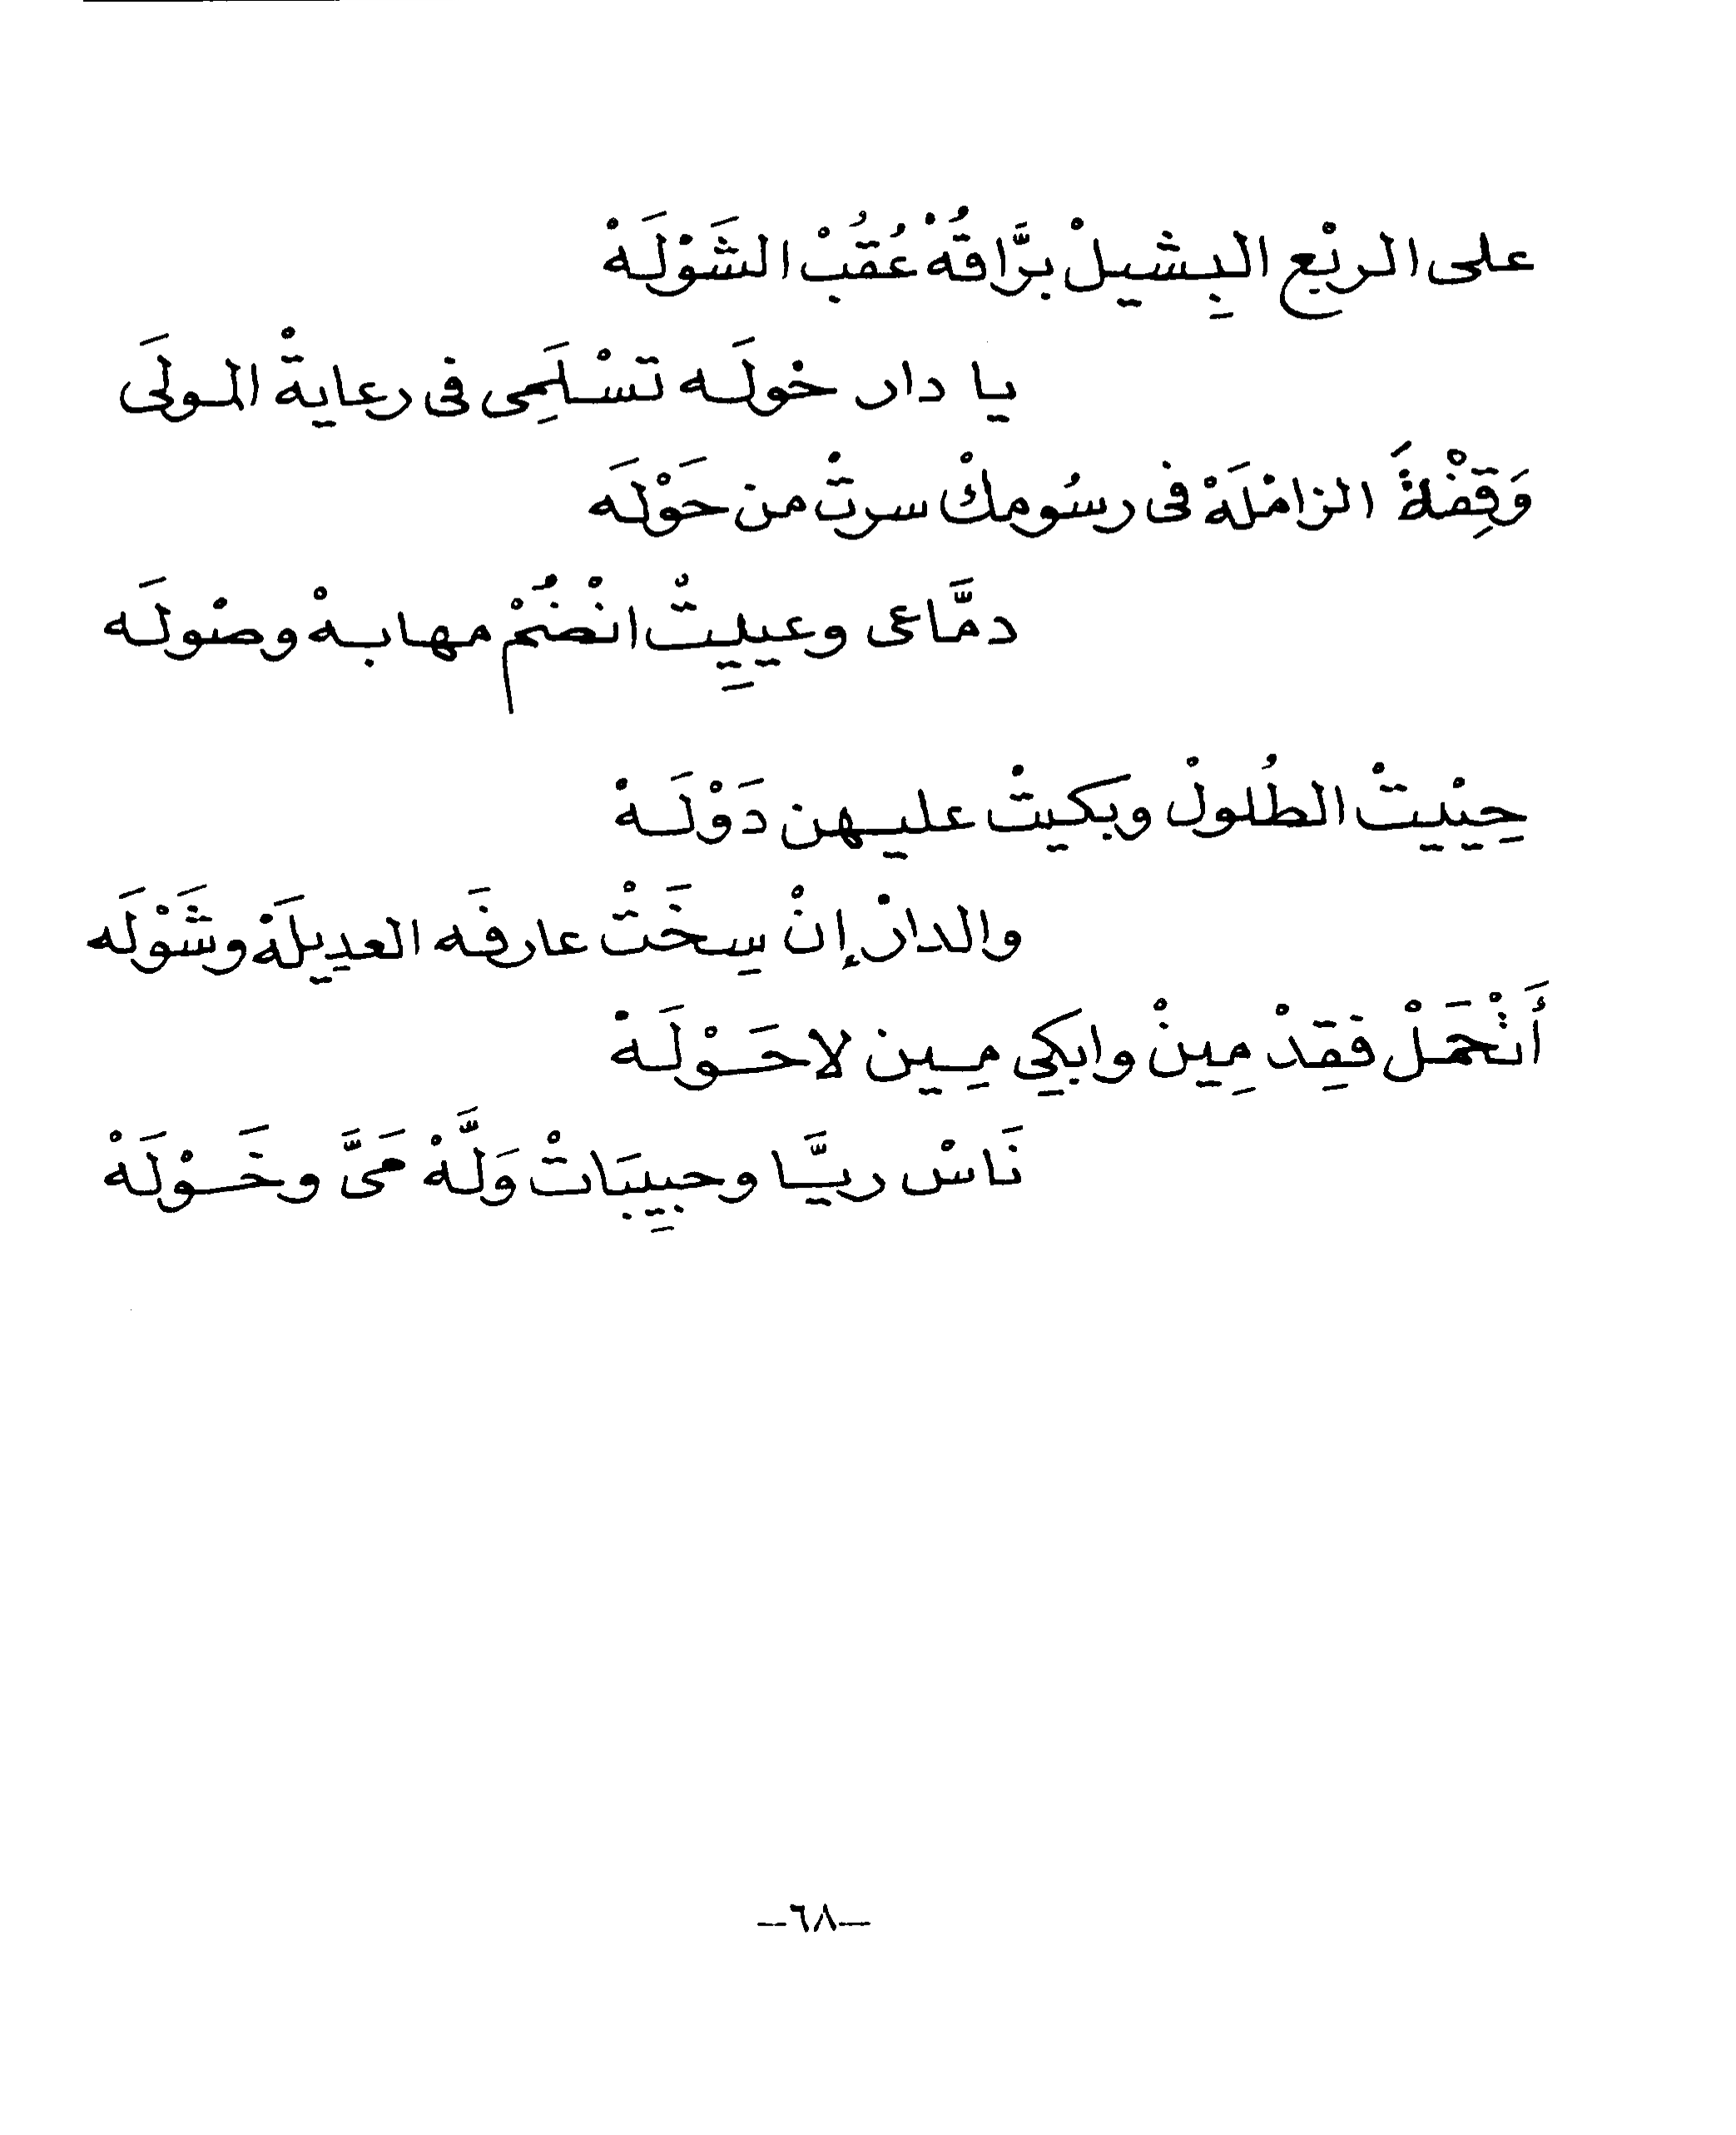 على الربْع البِشيلْ برَّاقهُْ عُقُبْ الشَوْلَهْ
يا دار خولَه تسْلَمِى فى رعايةْ المولَى
وَقِفْلةَ الزامْلَهْ فى رسُومِكْ سرتْ من حَوْلَه
دمَّاعى وعييِتْ انْضُمْ مهابهْ وصْولَه
حِيْيتْ الطُلولْ وبكيتْ عليهن دَوْلَهْ
والدارْ إنْ سِخَتْ عارفَه العديلَهْ وشَوْلَه
أَنْحَمَلْ فقِدْ مِينْ وابكِي مِين لاحَوْلَهْ
نَاسْ ريَّا وحبيِبَاتْ وَلَّهْ مَىَّ وخَوْلَهْ
—٦٨—